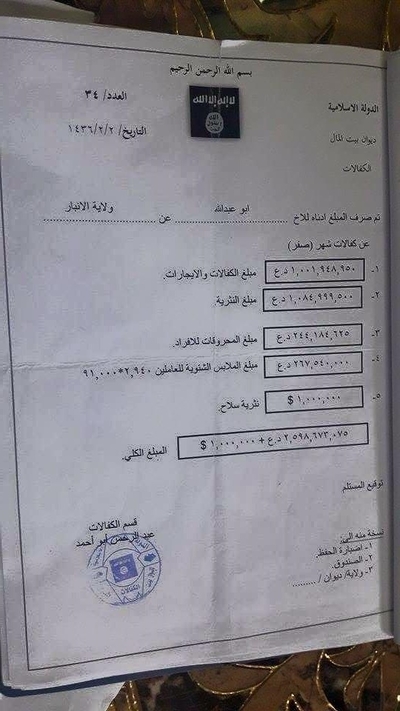 بسم الله الرحمن الرحيم
العدد/ ٣٤
لا إله إلا الله
الله
رسول
محمد
الدولة الاسلامية
التاريخ/ ١٤٣٦/٢/٢
ديوان بيت المال
الكفالات
تم صرف المبلغ ادناه للاخ ابو عبدالله عن ولاية الانبار
عن كفالات شهر (صفر)
١- ١,٠٠١,٩٤٨,٩٥٠ د.ع مبلغ الكفالات والايجارات.
٢- ١,٠٨٤,٩٩٩,٥٠٠ د.ع مبلغ النثرية.
٣- ٢٤٤,١٨٤,٦٢٥ د.ع مبلغ المحروقات للافراد.
٤- ٢٦٧,٥٤٠,٠٠٠ د.ع مبلغ الملابس الشتوية للعاملين ٢,٩٤٠*٩١,٠٠٠
٥- ١,٠٠٠,٠٠٠ $ نثرية سلاح.
٢,٥٩٨,٦٧٣,٠٧٥ د.ع + ١,٠٠٠,٠٠٠ $ المبلغ الكلي.
توقيع المستلم
قسم الكفالات
عبد الرحمن أبو أحمد
نسخة منه الى:
١- اضبارة الحفظ.
٢- الصندوق.
٣- ولاية/ ديوان / .........
الكفالات